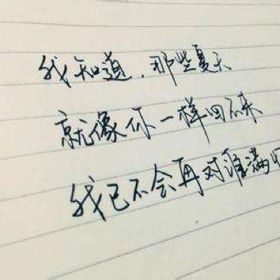 我知道，那些夏天
就像你一样回不来
我已不会再对谁满